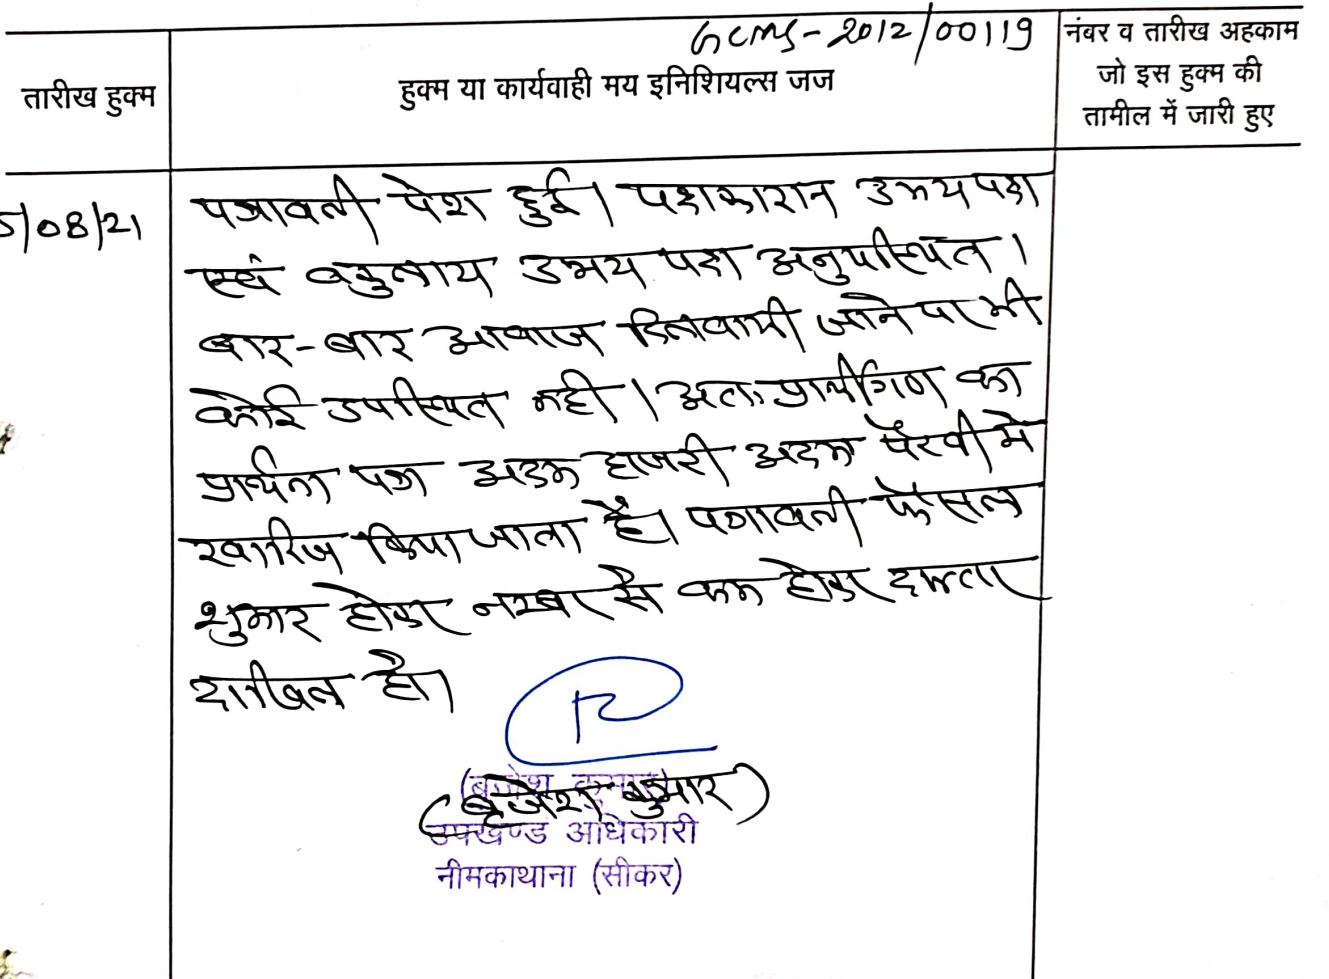 GCMS-2012/00119
तारीख हुक्म
हुक्म या कार्यवाही मय इनिशियल्स जज
नंबर व तारीख अहकाम
जो इस हुक्म की
तामील में जारी हुए
5/08/21
पत्रावली पेश हुई। पक्षकारान उभय पक्ष
एवं वकुलाय उभय पक्ष अनुपस्थित।
बार-बार आवाज दिलवायी जाने पर भी
कोई उपस्थित नही। अतः प्रार्थीगण का
प्रार्थना पत्र अदम हाजरी अदम पैरवी में
खारिज किया जाता है। पत्रावली फैसल
शुमार होकर नम्बर से कम होकर दफ्तर
दाखिल हो।
(बृजेश कुमार)
(बृजेश कुमार)
उपखण्ड अधिकारी
नीमकाथाना (सीकर)